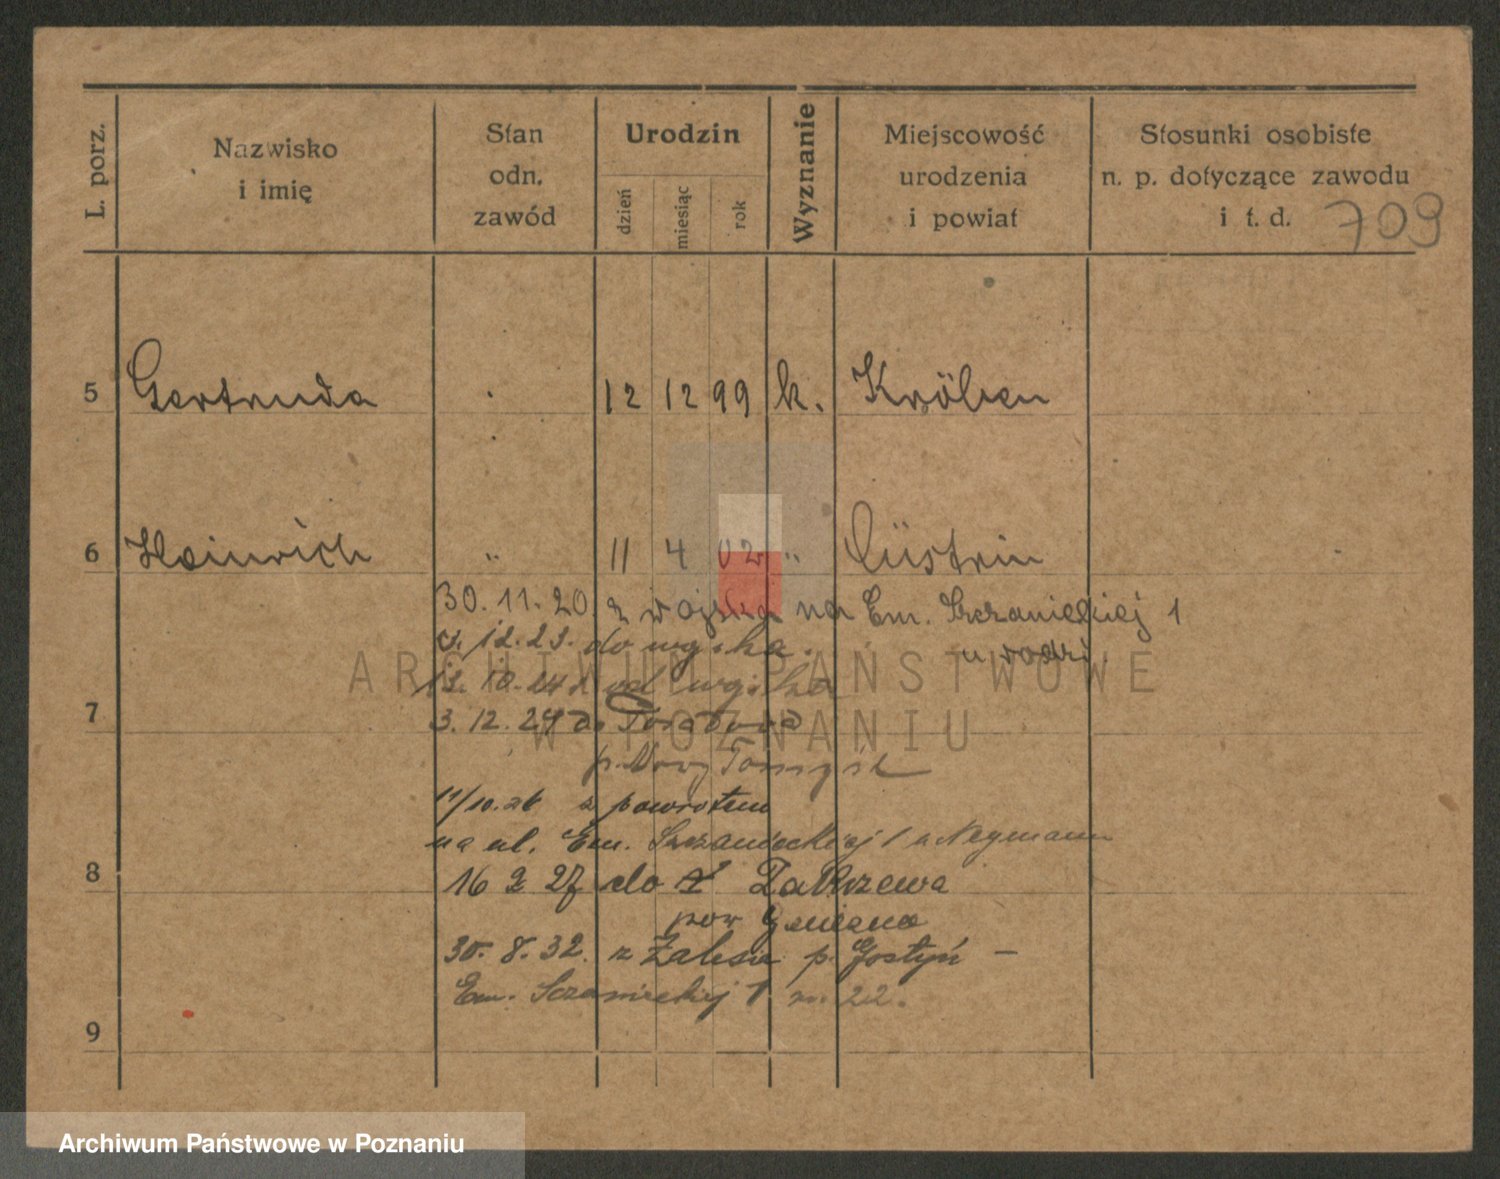 L. porz.
Nazwisko
i imię
Stan
odn.
zawód
Urodzin
dzień
miesiąc
rok
Wyznanie
Miejscowość
urodzenia
i powiat
Stosunki osobiste
n. p. dotyczące zawodu
i t. d.
709
5 Gertruda 12 12 99 k. Kröben
6 Heinrich " 11 4 02 " Cüstrin
30.11.20 z wojska na Em. Szczanieckiej 1
12.23. do wojska. u rodz.
10.24 od wojska
7
3.12.24 do
p. Nowy Tomyśl
11/10.26 z powrotem
na ul. Em. Szczanieckiej 1 u Neymann
8
16 9 27 do Zakrzewa
pow Gniezno
30.8.32. z Zalesie p. Gostyń –
Em. Sczanieckiej 1 m. 22.
9
ARCHIWUM PAŃSTWOWE
W POZNANIU
Archiwum Państwowe w Poznaniu